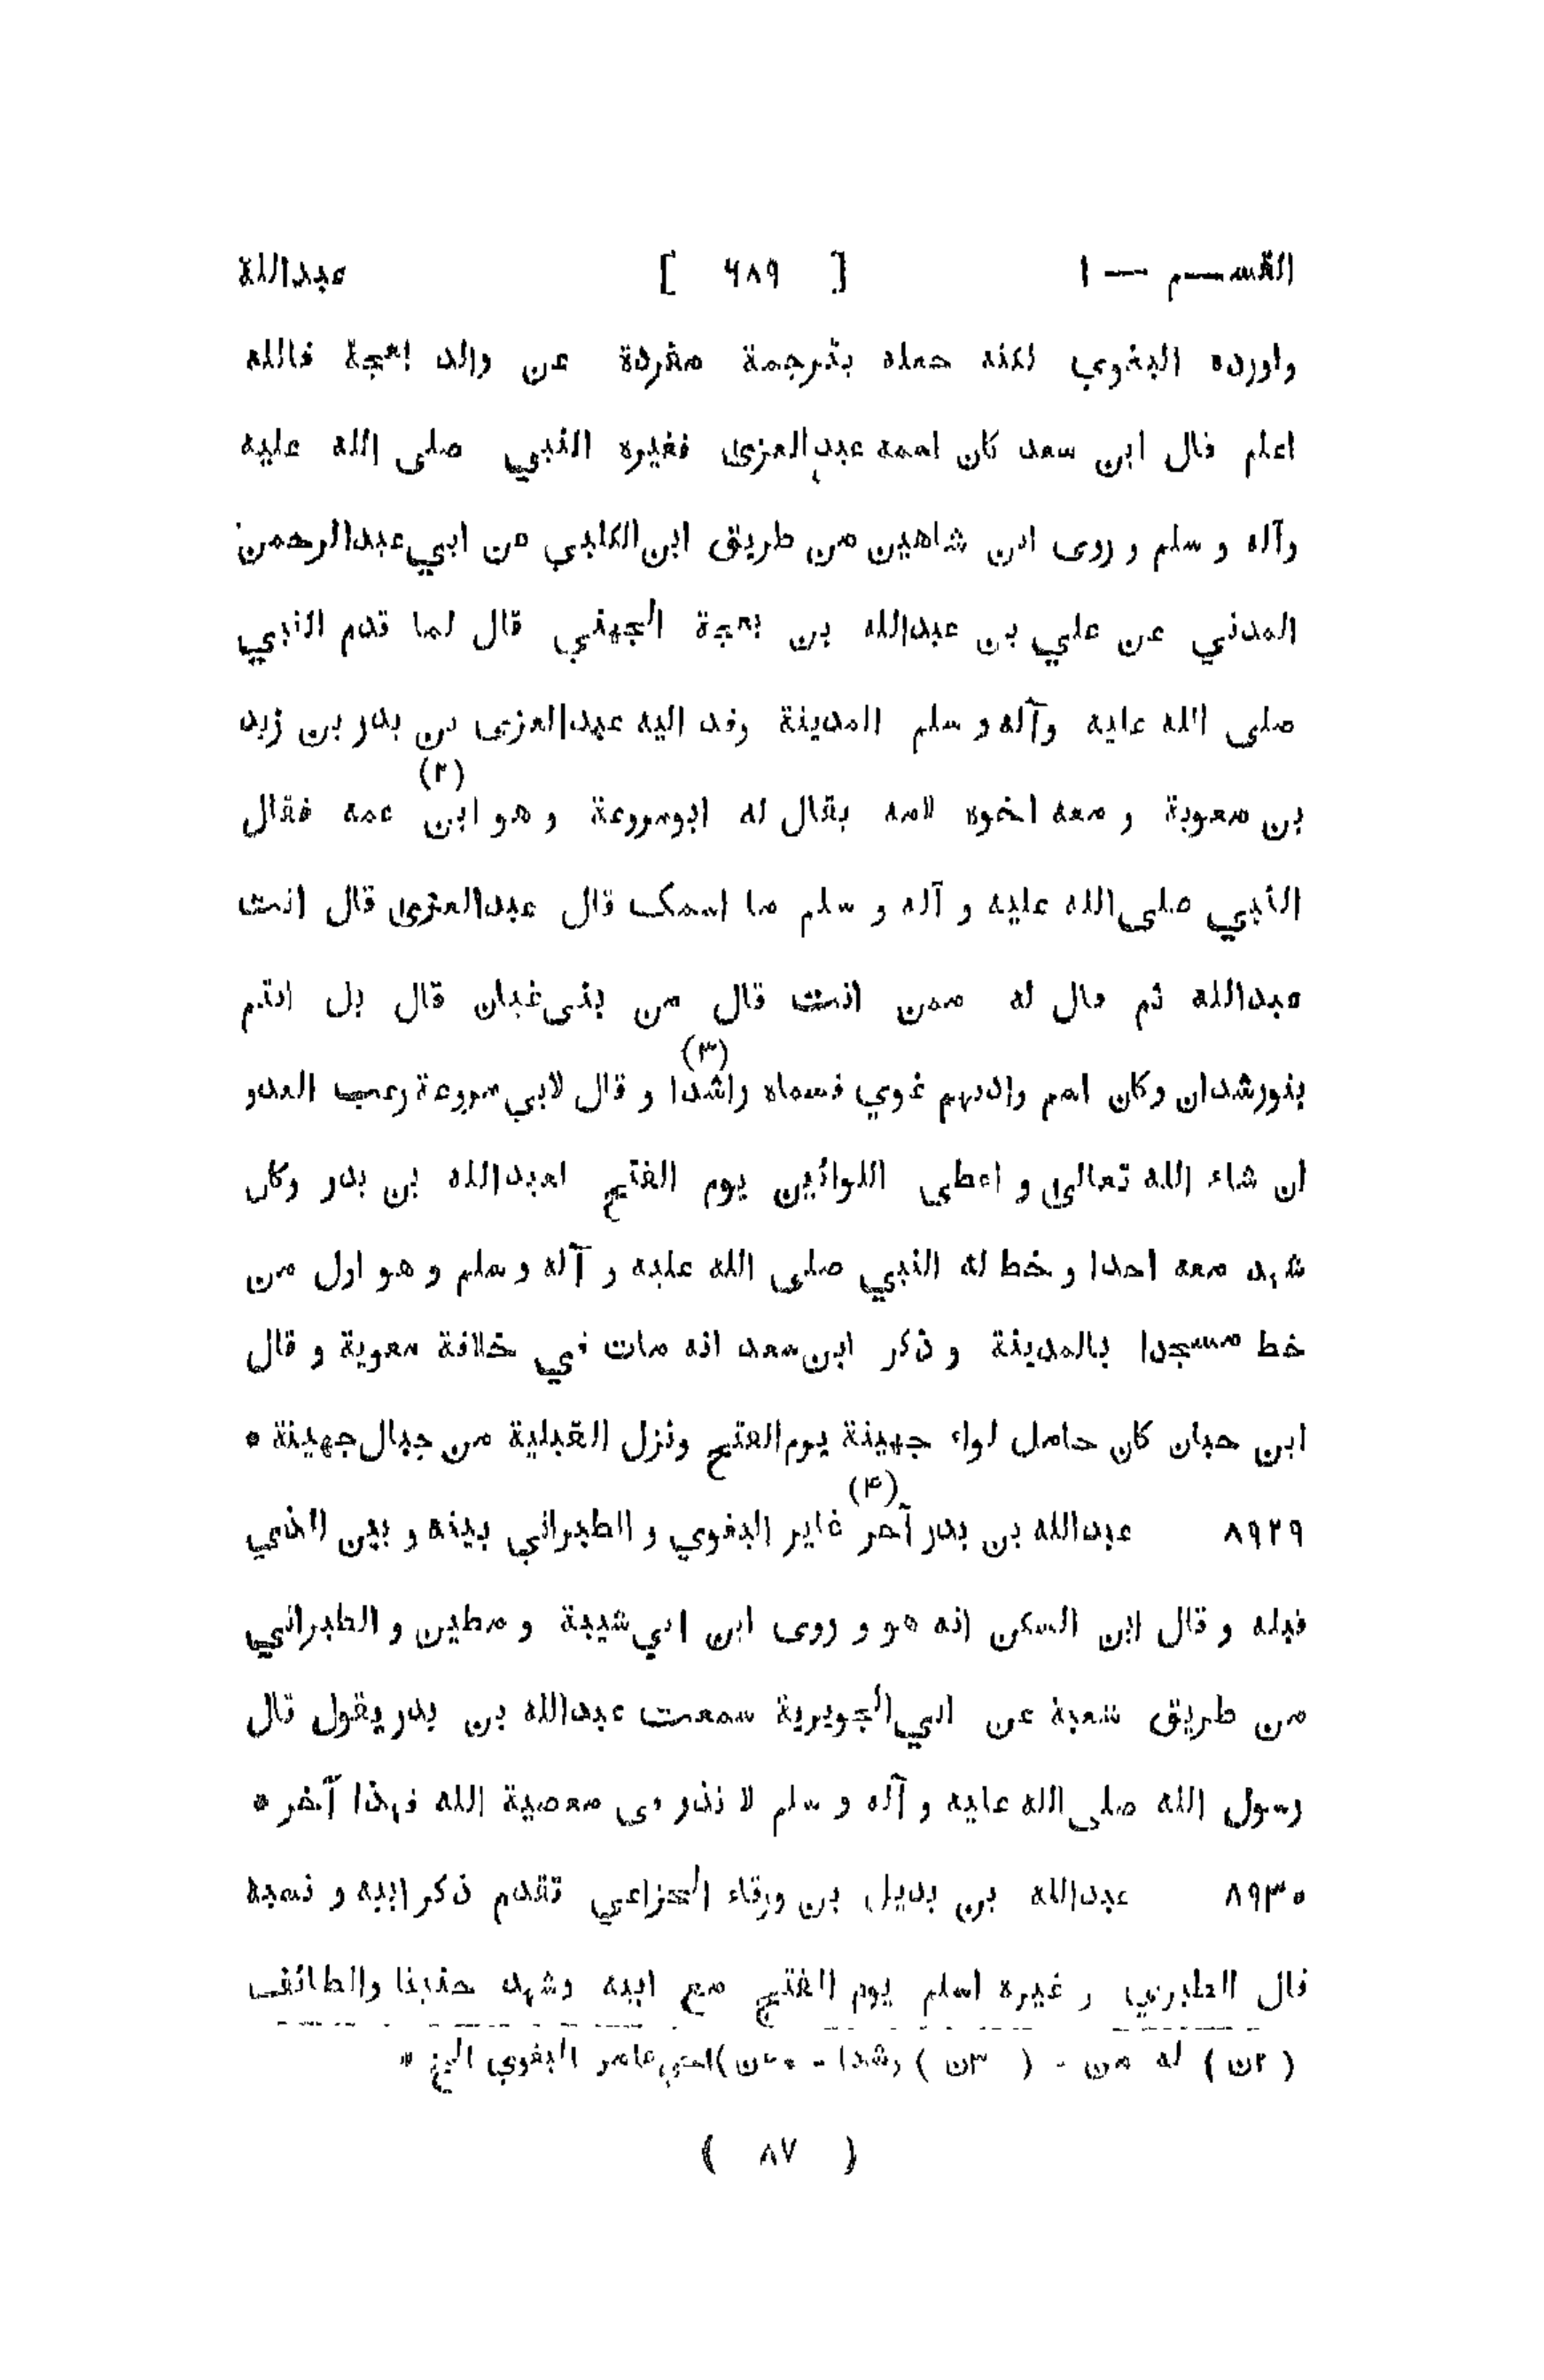 القسم — ١ [ ٦٨٩ ] عبدالله
واورده البغوي لكنه جعله بترجمة مفردة عن والد بعجة فالله
اعلم قال ابن سعد كان اسمه عبدالعزى فغيره النبي صلى الله عليه
وآله و سلم و روى ابن شاهين من طريق ابن الكلبي عن ابي عبدالرحمن
المدني عن علي بن عبدالله بن بعجة الجهني قال لما قدم النبي
صلى الله عليه وآله و سلم المدينة وفد اليه عبدالعزى بن بدر بن زيد
بن معوية و معه اخوه لامه يقال له ابوسروعة و هو ابن (٢) عمه فقال
النبي صلى الله عليه و آله و سلم ما اسمك قال عبدالعزى قال انت
عبدالله ثم قال له ممن انت قال من بنى غيان قال بل انتم
بنورشدان وكان اسم واديهم غوي فسماه راشدا (٣) و قال لابي سروعة رعب العدو
ان شاء الله تعالى و اعطى اللوائين يوم الفتح لعبدالله بن بدر وكان
شهد معه احدا و خط له النبي صلى الله عليه و آله و سلم و هو اول من
خط مسجدا بالمدينة و ذكر ابن سعد انه مات في خلافة معوية و قال
ابن حبان كان حامل لواء جهينة يوم الفتح ونزل القبلية من جبال جهينة *
٨٩٢٩ عبدالله بن بدر آخر (٤) غاير البغوي و الطبراني بينه و بين الذي
قبله و قال ابن السكن انه هو و روى ابن ابي شيبة و مطين و الطبراني
من طريق شعبة عن ابي الجويرية سمعت عبدالله بن بدر يقول قال
رسول الله صلى الله عليه و آله و سلم لا نذر فى معصية الله فهذا آخر *
٨٩٣٠ عبدالله بن بديل بن ورقاء الخزاعي تقدم ذكر ابيه و نسبه
قال الطبري و غيره اسلم يوم الفتح مع ابيه وشهد حنينا والطائف
( ٢ن ) له من - ( ٣ن ) رشدا - عامر البغوي الخ *
( ٨٧ )